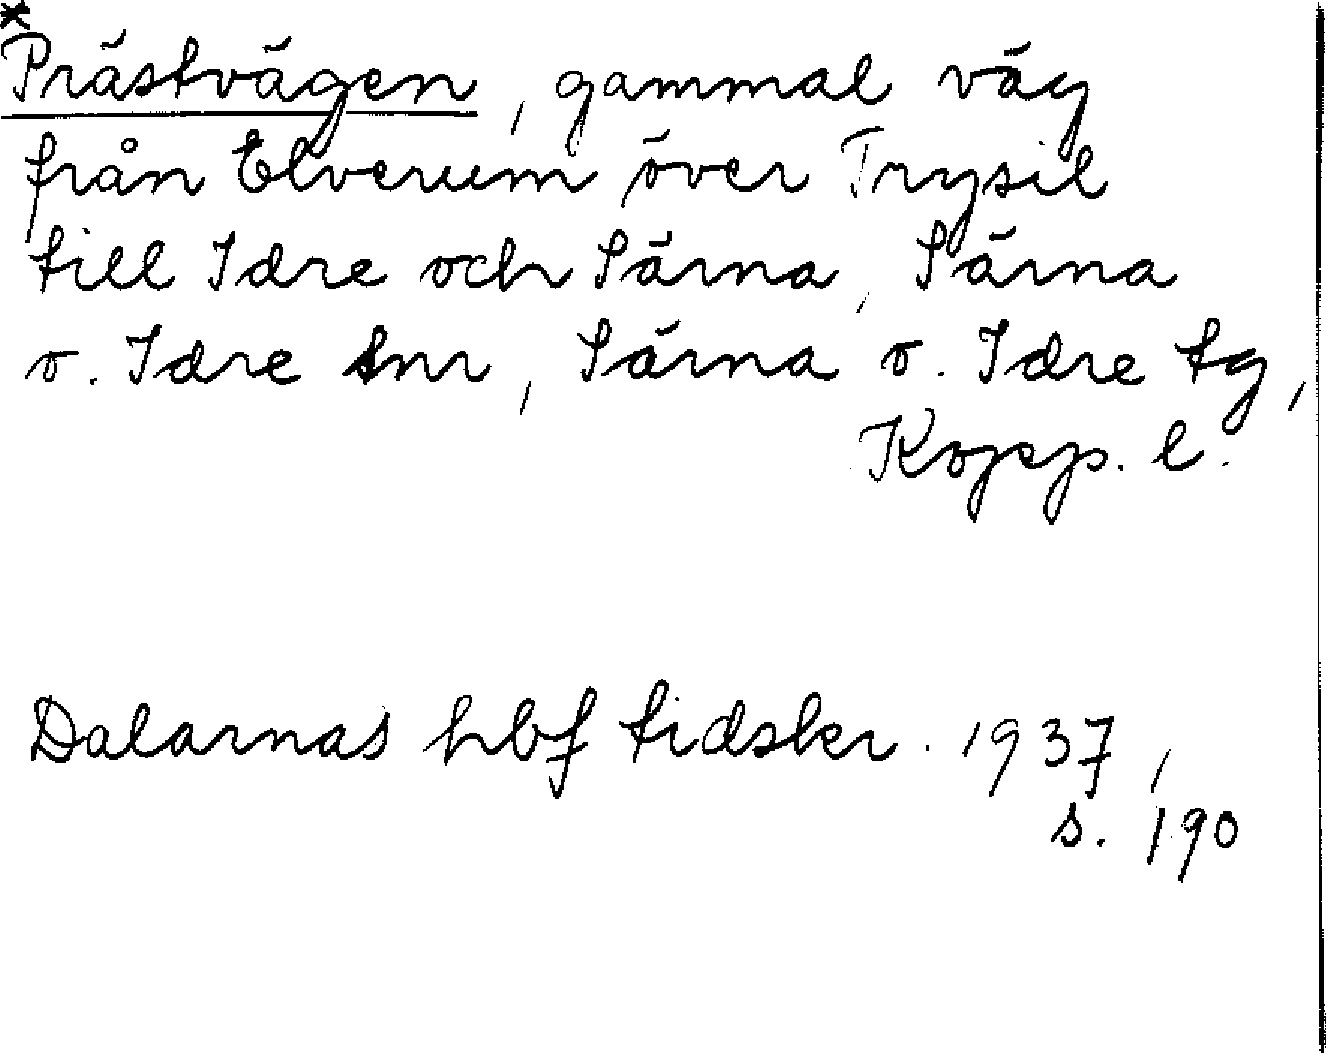 *
Prästvägen, gammal väg
från Elverum över Trysil
till Idre och Särna, Särna
o. Idre snr, Särna o. Idre tg,
Kopp. l.
Dalarnas hbf tidskr. 1937,
s. 190